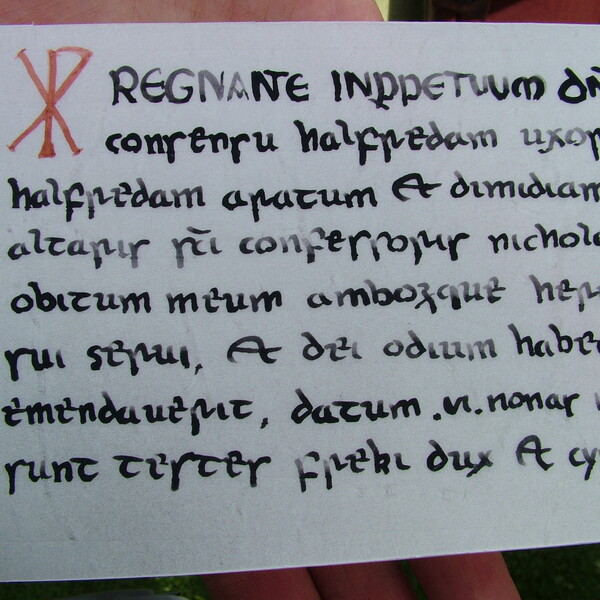 ☧ REGNANTE INPPETUUM DN̄
consensu halfredam uxor
halfredam aratum & dimidiam
altaris sc̄i confessoris nichole
obitum meum ambozque her
sui serui, & dei odium habe
emendauerit, datum .vi. nonas
sunt testes freki dux & cy